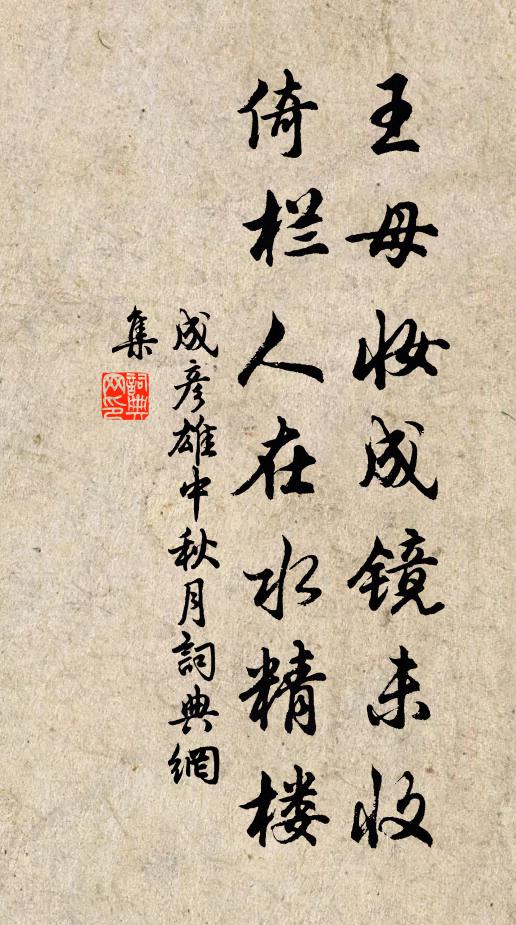 王母妆成镜未收
倚栏人在水精楼
成彦雄中秋月詞典網
集
詞典网印